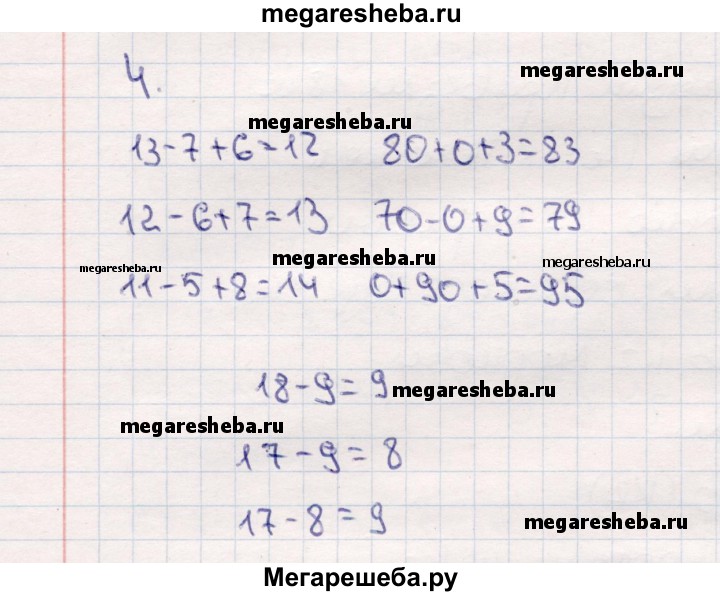 megaresheba.ru
4.
megaresheba.ru
megaresheba.ru
13-7+6=12 80+0+3=83
12-6+7=13 70-0+9=79
megaresheba.ru megaresheba.ru megaresheba.ru
11-5+8=14 0+90+5=95
18-9=9
megaresheba.ru
megaresheba.ru
17-9=8
17-8=9
megaresheba.ru
Мегарешеба.ру